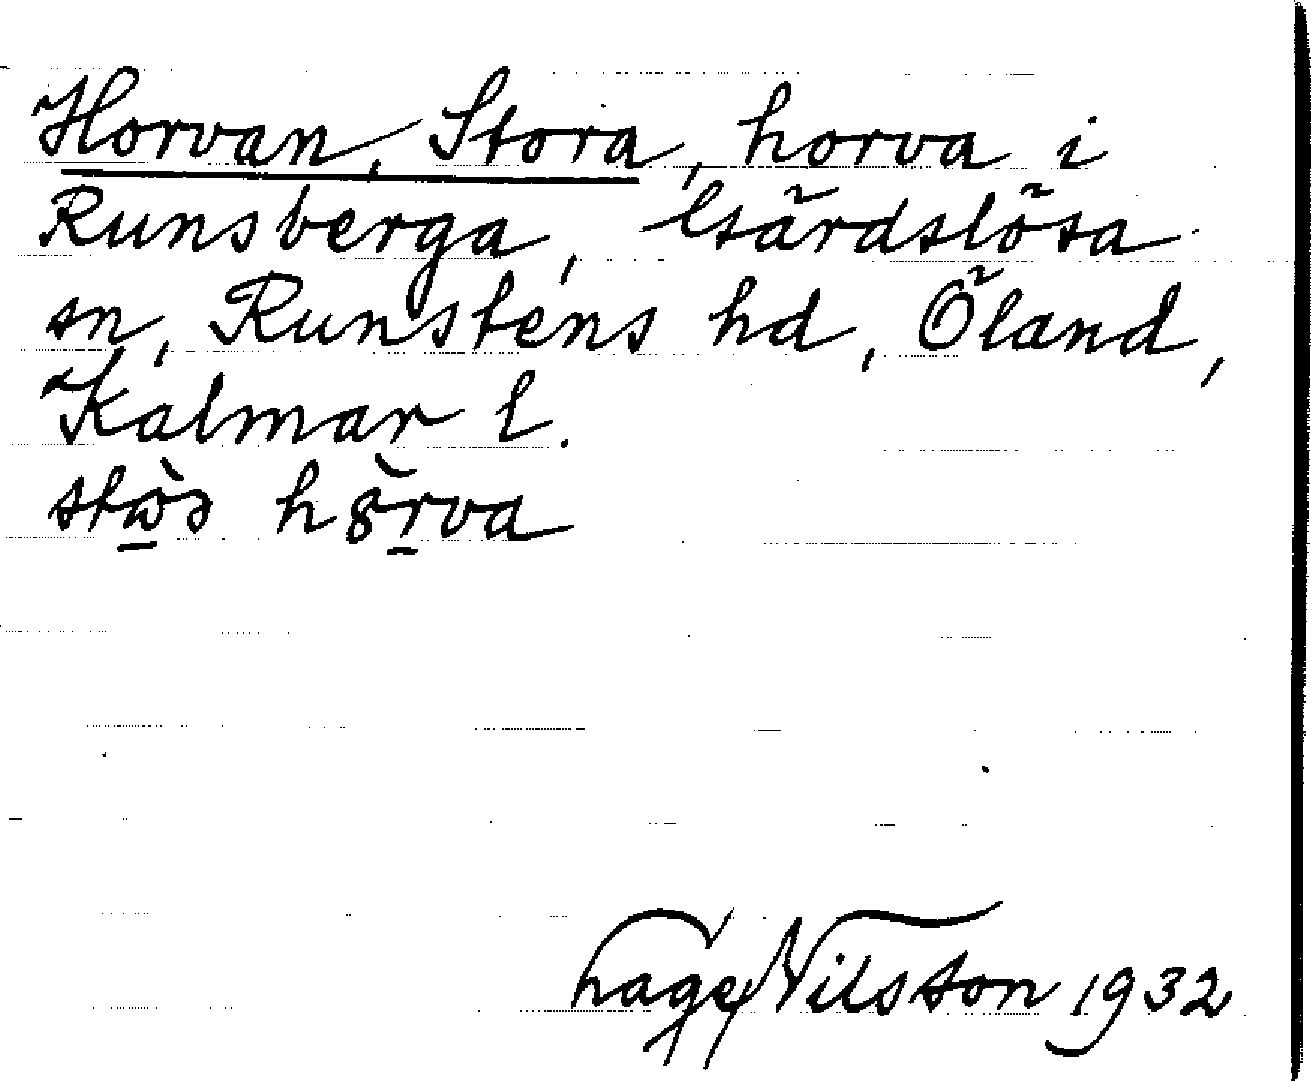 Horvan, Stora, horva i
Runsberga, Gärdslösa
sn, Runstens hd, Öland,
Kalmar l.
Nilsson 1932